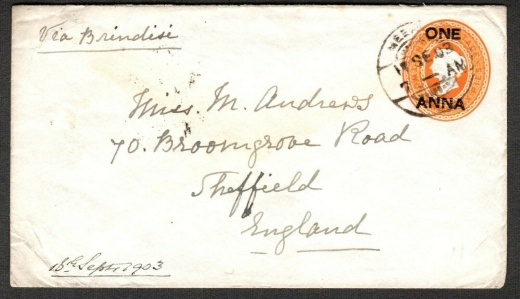 Via Brindisi
ONE
ANNA
Miss M. Andrews
70. Broomgrove Road
Sheffield
England
16th Sept. 1903